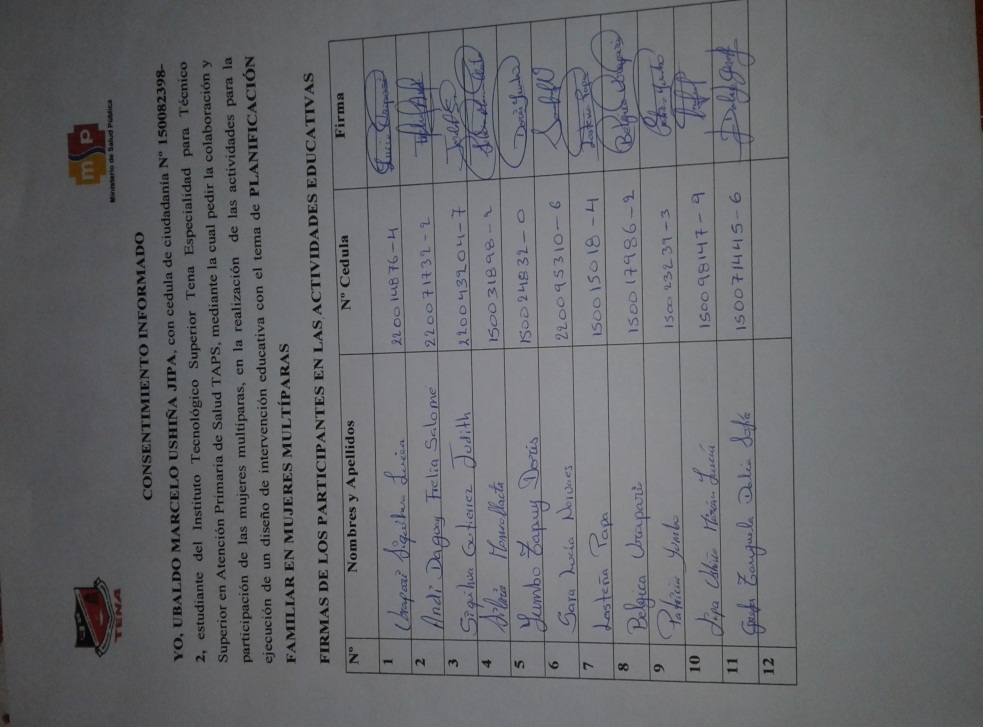 TENA
msp
Ministerio de Salud Pública
CONSENTIMIENTO INFORMADO
YO, UBALDO MARCELO USHIÑA JIPA, con cedula de ciudadanía N° 150082398-
2, estudiante del Instituto Tecnológico Superior Tena Especialidad para Técnico
Superior en Atención Primaria de Salud TAPS, mediante la cual pedir la colaboración y
participación de las mujeres multiparas, en la realización de las actividades para la
ejecución de un diseño de intervención educativa con el tema de PLANIFICACIÓN
FAMILIAR EN MUJERES MULTÍPARAS
FIRMAS DE LOS PARTICIPANTES EN LAS ACTIVIDADES EDUCATIVAS
N° Nombres y Apellidos N° Cedula Firma
1 Urapari Siquihua Lucia 220014876-4
2 Andi Dagay Frelia Salome 220071732-2
3 Siquihua Gutierrez Judith 220043204-7
4 Silvia 150031898-2
5 Yumbo Tapuy Doris 150024832-0
6 Sara Lucia Narvaes 220095310-6
7 Lasteña Papa 150015018-4
8 Belgica Urapari 150017986-2
9 Patricia Yumbo 150023239-3
10 Jipa 150098147-9
11 Grefa Delia 150071445-6
12